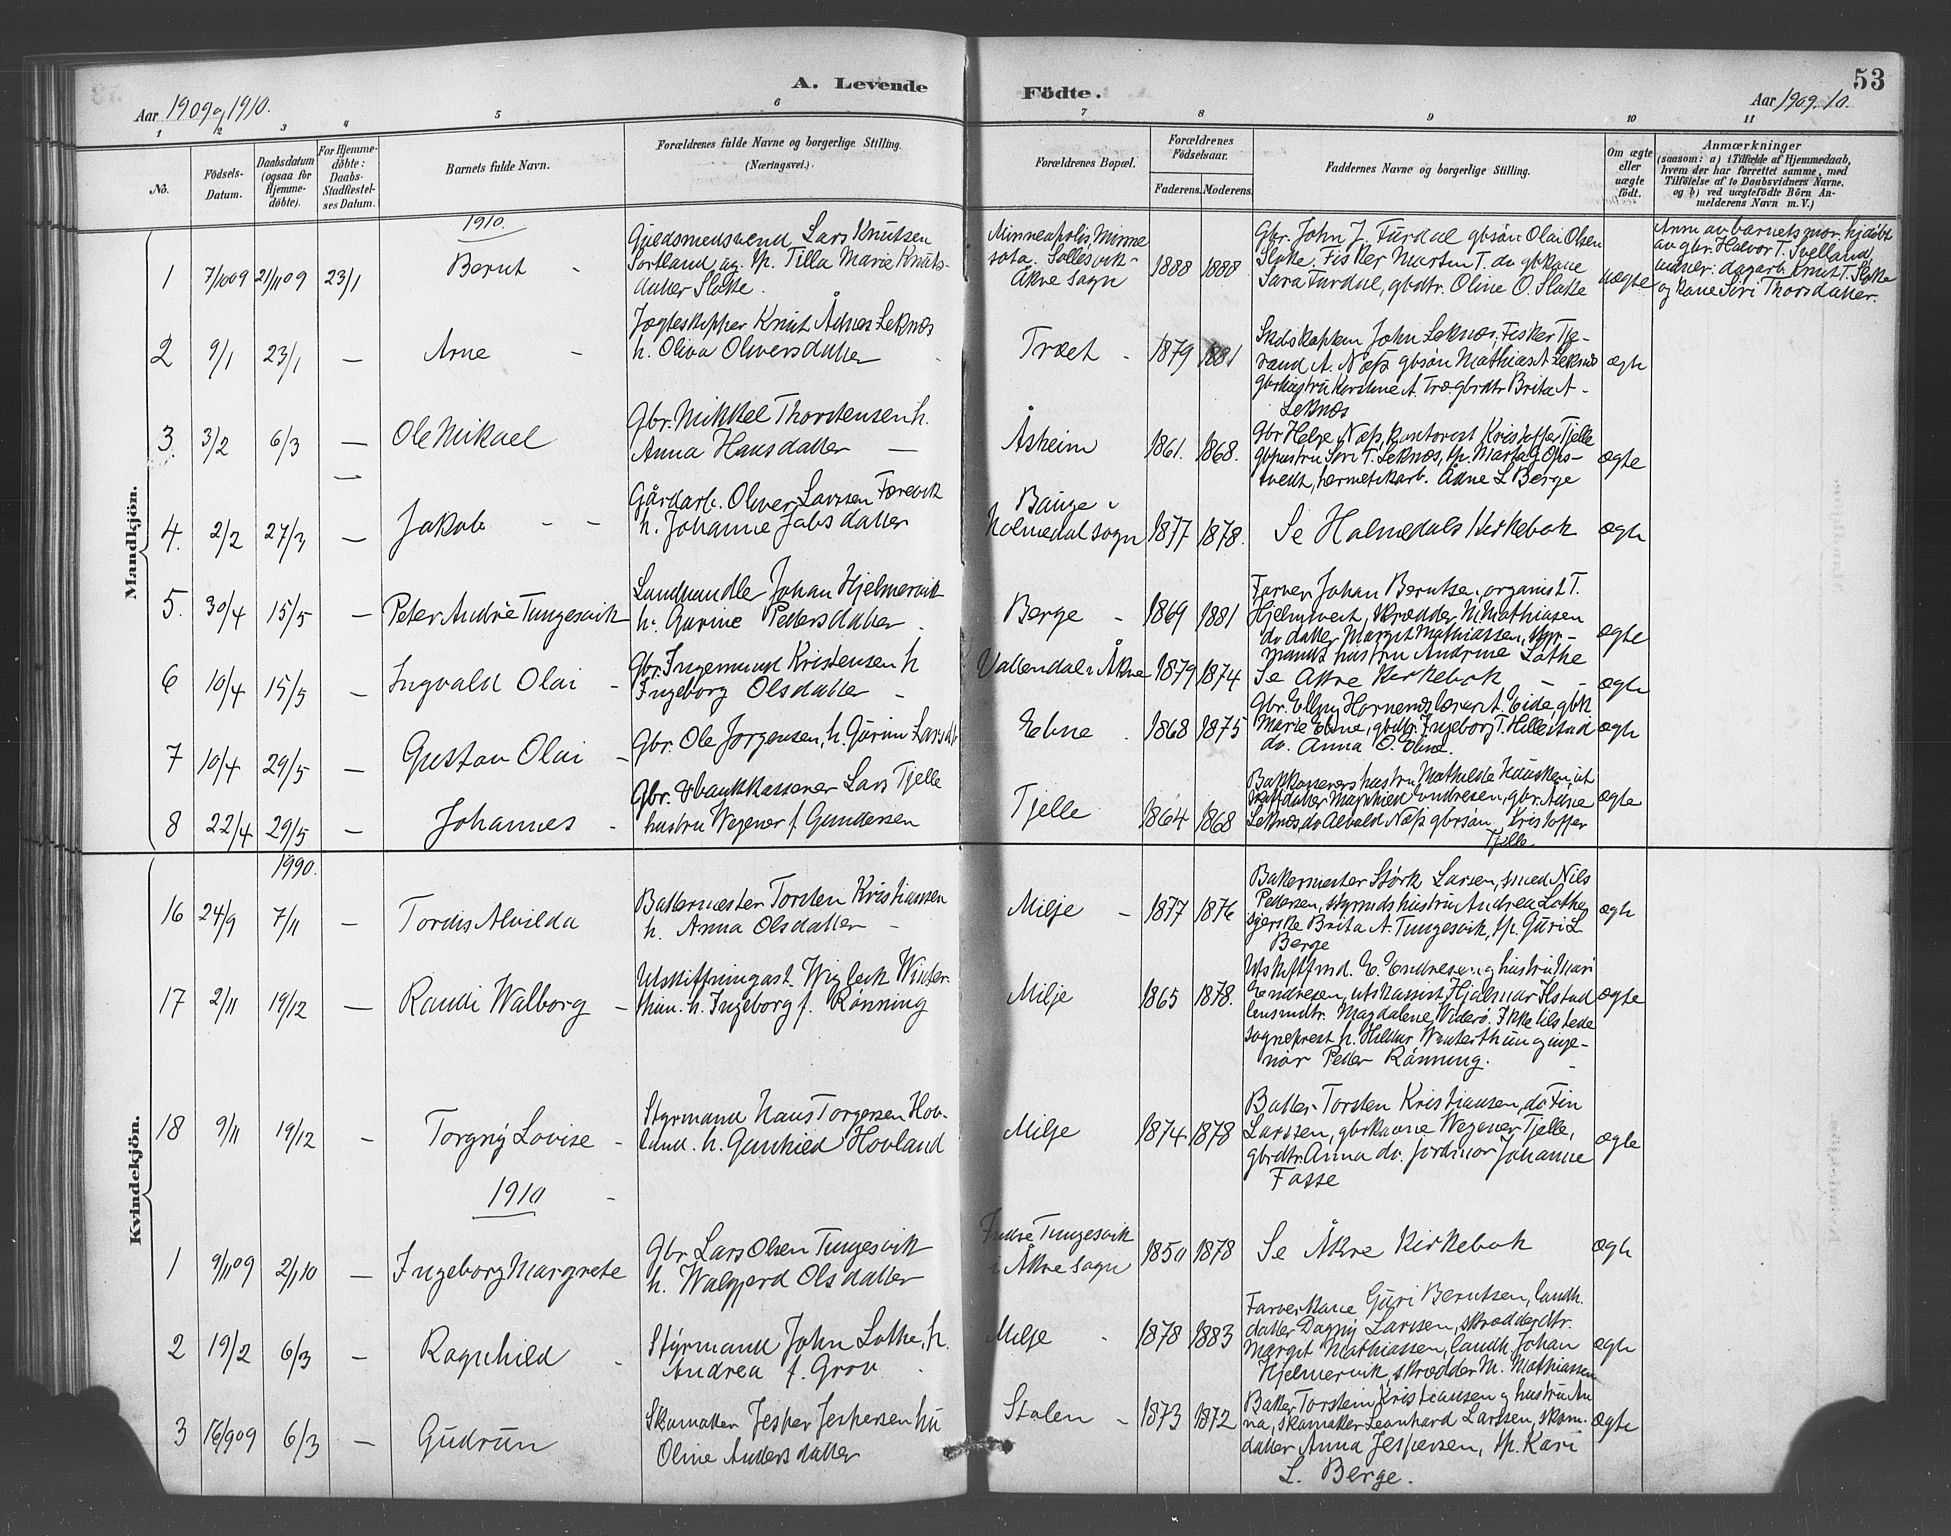 53
A. Levende
Födte.
Aar 1909 og 1910.
Aar 1909.10.
1 2 3 4 5 6 7 8 9 10 11
No.
Födsels-
Datum.
Daabsdatum
(ogsaa for
Hjemme-
döbte).
For Hjemme-
döbte:
Daabs-
Stadfæstel-
ses Datum.
Barnets fulde Navn.
Forældrenes fulde Navne og borgerlige Stilling.
(Næringsvei.)
Forældrenes Bopæl.
Forældrenes
Födselsaar.
Faderens. Moderens.
Faddernes Navne og borgerlige Stilling.
Om ægte
eller
uægte
födt.
Anmærkninger
(saasom: a) i Tilfælde af Hjemmedaab,
hvem der har forrettet samme, med
Tilföielse af to Daabsvidners Navne.
og b) ved uægtefödt Börn An-
melderens Navn m. V.)
Mandkjön.
1910.
1 7/10 09 21/11 09 23/1 Bernt -
Guldsmedsvend Lars Knutsen
Sortland ug. p. Tilla Marie Knuts-
datter Slotte.
Minneapolis, Minne
sota. Sallesvik-
Åkre sogn
1888 1888
Gbr. John J. Furdal gbsön Olai Olsen
Slotte, Fisker Morten T. do gbkone
Sara Furdal, gbdtr. Oline O. Slotte
uægte
Anm. av barnets mor. hjdöbt
av gbr. Halvor T. Svelland,
vidner: dagarb. Knut T. Slotte
og kone Siri Thorsdatter.
2 9/1 23/1 — Arne -
Jægteskipper Knut Ådnes Leknæs
h. Oliva Oliversdatter
Træet - 1879 1881
Skibskapten John Leknæs, Fisker Tje-
rand A. Næss gbsön Mathias A Leknæs
gbrhustru Kordine A. Træ gbrdtr Brita A-
Leknæs
ægte
3. 3/2 6/3 — Ole Mikael
Gbr. Mikkel Thorstensen h.
Anna Hansdatter —
Åsheim 1861. 1868.
Gbr Helge Næss, kontorist Kristoffer Tjelle
gbhustru Siri T. Leknæs, p. Marta G Ops-
tvedt, hermetikarb. Ådne L Berge
ægte
4. 2/2 27/3 — Jakob - -
Gårdarb. Oliver Larssen Færevik
h. Johanne Jabsdatter
Bauge i
Holmedal sogn 1877 1878.
Se Holmedals Kirkebok ægte
5. 30/4 15/5 — Peter Andrè Tungesvik
Landhandler Johan Hjelmervik
h. Gurine Pedersdatter.
Berge - 1869 1881
Farver Johan Berntsen, organist T.
Hjelmtveit, skrædder M. Mathiasen
do datter Margit Mathiassen, styr-
mands hustru Andrine Lothe
ægte
6 10/4 15/5 — Ingvald Olai -
Gbr. Ingemund Kristensen h
Ingeborg Olsdatter -
Vallendal i Åkre 1879 1874
Se Åkre Kirkebok - - ægte
7 10/4 29/5 — Gustav Olai -
Gbr. Ole Jörgensen, h. Gurine Larsdtr
Ebne . 1868 1875
Gbr. Elling Hornenes, lærer A. Eide, gbk
Marie Ebne, gbdtr. Ingeborg T. Hillestad
do. Anna O. Ebne.
ægte
8 22/4 29/5 — Johannes -
Gbr. & bankkasserer Lars Tjelle
hustru Wegener f. Gundersen
Tjelle 1864 1868
Bokkasserers hustru Mathilde Hausken, ut
skiftdatter Magnhild Endresen, gbr. Ådne
Leknæs, do Alvald Næss gbrsön Kristoffer
Tjelle
ægte
Kvindekjön.
1990.
16 24/9 7/11 — Tordis Alvilda
Bakermester Torsten Kristiansen
h. Anna Olsdatter -
Milje - 1877 1876
Bakermester Störk Larsen, smed Nils
Pedersen, styrmds hustru Andrea Lothe
syerske Brita A. Tungesvik, p. Guri L
Berge
ægte
17 2/11 19/12 — Randi Walborg -
Utskiftningast. Wigleik Winter-
thun. h. Ingeborg f. Rönning
Milje 1865 1878.
Utskiftfmd. E. Endresen og hustru Mari
Endresen, utskassist Hjalmar Ilstad
lensmdtr. Magdalene Viderö. Ikke tilstede
sogneprest h. Hildur Winterthun og inge-
niör Peder Rönning.
ægte
18 9/11 19/12 - Torgny Lovise -
Styrmand Hans Torgersen Hov-
land. h. Gunhild Hovland
Milje 1874 1878
Baker Torsten Kristiansen, do Fin
Larssen, gbrkone Wegener Tjelle,
gbrdtr. Anna do. jordmor Johanne
Fasse
ægte
1910 -
1 9/11 09 2/1 10 — Ingeborg Margrete
Gbr. Lars Olsen Tungesvik
h. Walgjerd Olsdatter
Indre Tungesvik
i Åkre sogn 1850 1878
Se Åkre Kirkebok ægte
2 19/2 6/3 - Ragnhild -
Styrmand John Lothe, h.
Andrea f. Grov .
Milje - 1878 1883
Farverkone Guri Berntsen, landh.
datter Dagny Larssen, skrædderdtr.
Margit Mathiassen, landh. Johan
Hjelmervik, skrædder M. Mathiassen
ægte
3 16/9 09 6/3 — Gudrun
Skomaker Jesper Jespersen hu
Oline Andersdatter
Stolen - 1873 1872
Baker Torstein Kristiansen og hustru An-
na, skomaker Leonhard Larssen, skom-
datter Anna Jespersen, p. Kari
L. Berge.
ægte